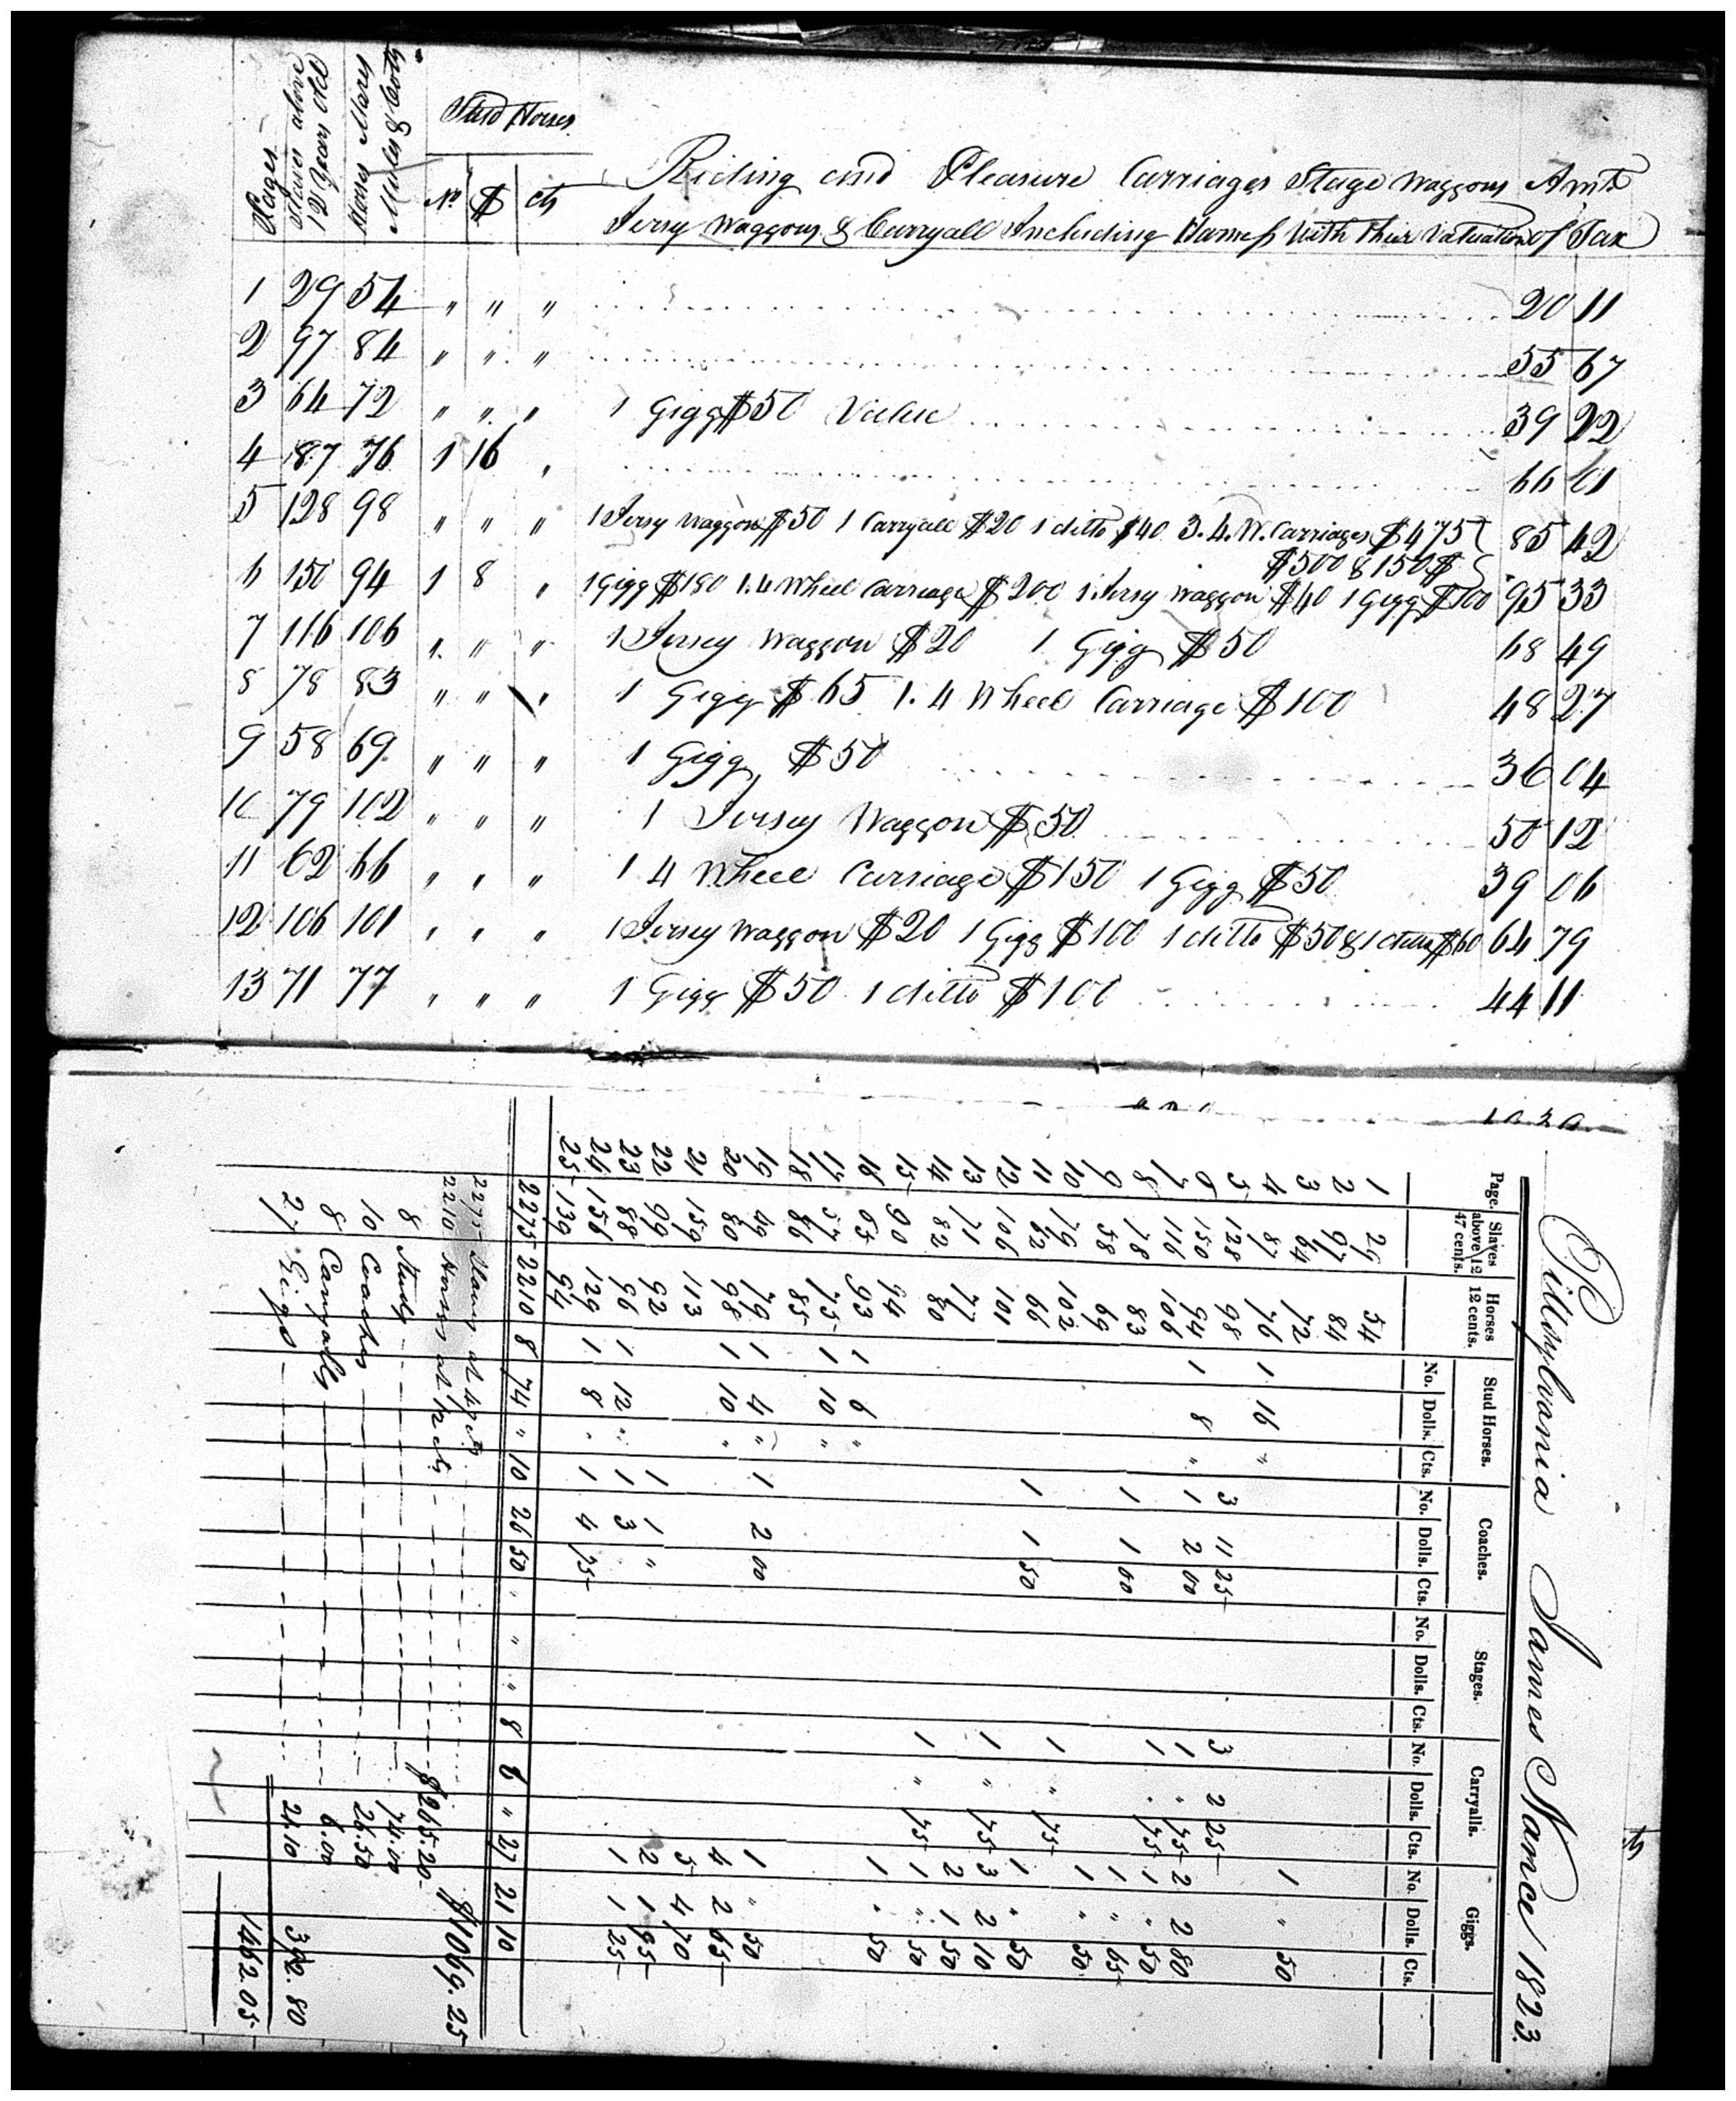 Pages
Slaves above
12 Years Old
Horses Mares
Mules & Colts
Stud Horses
No $ cts
Riding and Pleasure Carriages Stage Waggons Amt
Jersey Waggons & Carryall Including Harness With Their Valuation of Tax
1 29 54 " " " 20 11
2 97 84 " " " 55 67
3 64 72 " " " 1 Gigg $50 Value 39 22
4 87 76 1 16 " 66 01
5 128 98 " " " 1 Jersy Waggon $50 1 Carryall $20 1 ditto $40 3. 4. W. Carriages $475 85 42
$500 & 150$
6 150 94 1 8 " 1 Gigg $180 1. 4 Wheel Carriage $200 1 Jersy Waggon $40 1 Gigg $100 95 33
7 116 106 " " " 1 Jersey Waggon $20 1 Gigg $50 68 49
8 78 83 " " " 1 Gigg $65 1. 4 Wheel Carriage $100 48 27
9 58 69 " " " 1 Gigg $50 36 04
10 79 102 " " " 1 Jersey Waggon $50 50 12
11 62 66 " " " 1 4 Wheel Carriage $150 1 Gigg $50 39 06
12 106 101 " " " 1 Jersey Waggon $20 1 Gigg $100 1 ditto $50 & 1 ditto $60 64 79
13 71 77 " " " 1 Gigg $50 1 ditto $100 44 11
Pittsylvania James Nance 1823
Page. Slaves above 12 47 cents. Horses 12 cents. Stud Horses. Coaches. Stages. Carryalls. Giggs.
No. Dolls. Cts. No. Dolls. Cts. No. Dolls. Cts. No. Dolls. Cts. No. Dolls. Cts.
1 29 54
2 97 84
3 64 72 1 " 50
4 87 76 1 16 "
5 128 98 3 11 25 3 2 25
6 150 94 1 8 " 1 2 00 1 " 75 2 2 80
7 116 106 1 " 75 1 " 50
8 78 83 1 1 00 1 " 65
9 58 69 1 " 50
10 79 102 1 " 75
11 62 66 1 1 50 1 " 50
12 106 101 1 " 75 3 2 10
13 71 77 2 1 50
14 82 80 1 " 75 1 " 50
15 90 94 1 " 50
16 65 93 1 6 "
17 57 75 1 10 "
18 86 85
19 49 79 1 4 " 1 2 00 1 " 50
20 80 98 1 10 " 4 2 65
21 159 113 5 4 70
22 99 92 1 1 " 2 1 95
23 88 96 1 12 " 1 3 " 1 1 25
24 156 129 1 8 " 1 4 75
25 139 94
2275 2210 8 74 " 10 26 50 " " " 8 6 " 27 21 10
2275 Slaves at 47 cts $1069.25
2210 Horses at 12 cts $265.20
8 Studs 74.00
10 Coaches 26.50
8 Carryalls 6.00
27 Giggs 21.10 392.80
1462.05